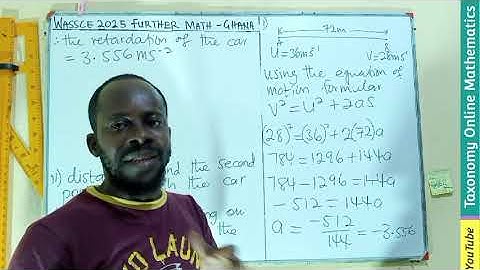 WASSCE 2025 FURTHER MATH - GHANA
∴ the retardation of the car
= 3.556ms⁻²
ii) distance
the second
the car
on
the
i)
72m
U=36ms⁻¹
V=28ms⁻¹
using the equation of
motion formular
V² = U² + 2as
(28)² = (36)² + 2(72)a
784 = 1296 + 144a
784 - 1296 = 144a
- 512 = 144a
a = -512/144 = -3.556
Taxonomy Online Mathematics
YouTube